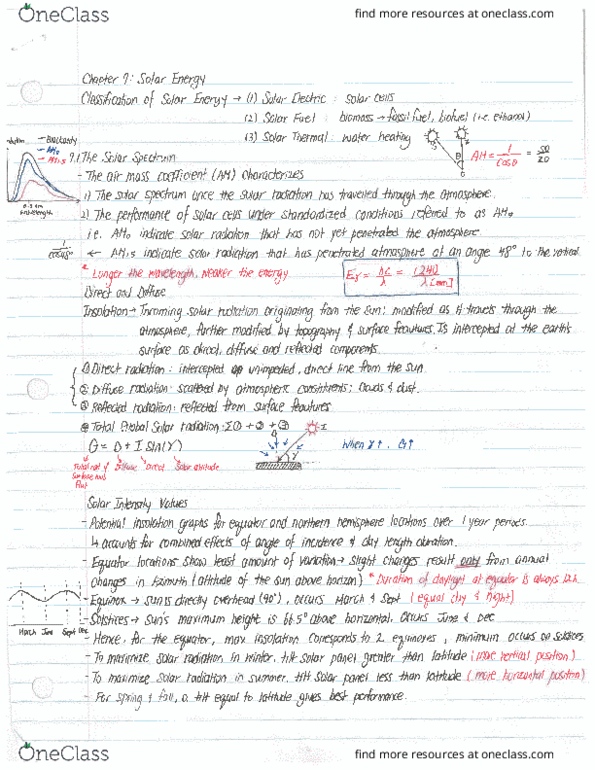 OneClass
find more resources at oneclass.com
Chapter 9: Solar Energy
Classification of Solar Energy → (1) Solar Electric : solar cells
(2) Solar Fuel : biomass → fossil fuel, biofuel (i.e. ethanol)
(3) Solar Thermal : water heating
AM = 1/cosθ =
Blackbody
AM0
AM1.5
wavelength
9.1 The Solar Spectrum
- The air mass coefficient (AM) characterizes
1) The solar spectrum once the solar radiation has travelled through the atmosphere.
2) The performance of solar cells under standardized conditions referred to as AM0
i.e. AM0 indicate solar radiation that has not yet penetrated the atmosphere.
1/cos48° ← AM1.5 indicate solar radiation that has penetrated atmosphere at an angle 48° to the vertical
* Longer the wavelength, weaker the energy
Eg = hc/λ = 1240/λ[nm]
Direct and Diffuse
Insolation → Incoming solar radiation originating from the sun; modified as it travels through the
atmosphere, further modified by topography & surface features. Is intercepted at the earth's
surface as direct, diffuse and reflected components.
① Direct radiation: intercepted unimpeded, direct line from the sun.
② Diffuse radiation: scattered by atmospheric constituents; clouds & dust.
③ Reflected radiation: reflected from surface features.
④ Total Global Solar radiation: Σ① + ② + ③
G = D + I sin(γ)
D
I
γ
When γ↑, G↑
Diffuse
Direct
Solar altitude
Flux
Solar Intensity Values
- Potential insolation graphs for equator and northern hemisphere locations over 1 year periods.
↳ accounts for combined effects of angle of incidence & day length duration.
- Equator locations show least amount of variation → Slight changes result only from annual
changes in azimuth (altitude of the sun above horizon) * Duration of daylight at equator is always 12h
- Equinox → sun is directly overhead (90°), occurs March & Sept (equal day & night)
- Solstices → Sun's maximum height is 66.5° above horizontal. Occurs June & Dec
- Hence, for the equator, max insolation corresponds to 2 equinoxes, minimum occurs on solstices
March June Sept Dec
- To maximize solar radiation in winter, tilt solar panel greater than latitude (more vertical position)
- To maximize Solar radiation in summer, tilt solar panel less than latitude (more horizontal position)
- For spring & fall, a tilt equal to latitude gives best performance.
OneClass
find more resources at oneclass.com